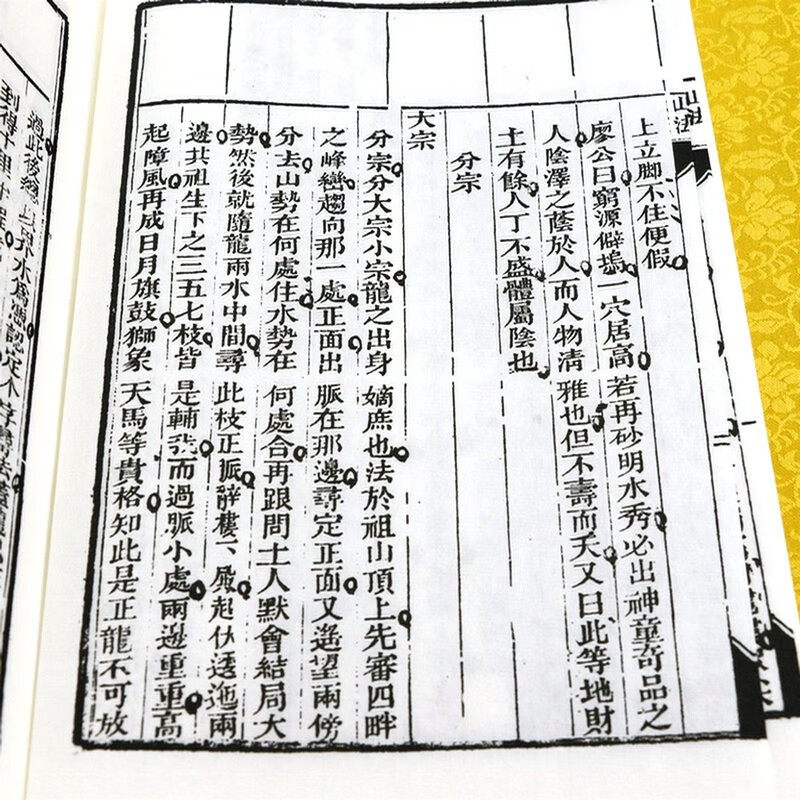 上立脚不住便假
廖公曰窮源僻塢一穴居高若再砂明水秀必出神童奇品之
人陰澤之蔭於人而人物清雅也但不壽而夭又曰此等地財
土有餘人丁不盛體屬陰也
分宗
大宗
分宗分大宗小宗龍之出身嫡庶也法於祖山頂上先審四畔
之峰巒趨向那一處正面出脈在那邊尋定正面又遙望兩傍
分去山勢在何處住水勢在何處合再跟問土人默會結局大
勢然後就隨龍兩水中間尋此枝正脈辭樓下殿起伏透迤兩
邊共祖生下之三五七枝皆是輔而過脈小處兩邊重重高
起障風再成日月旗鼓獅象天馬等貴格知此是正龍不可放
過此後總
到得